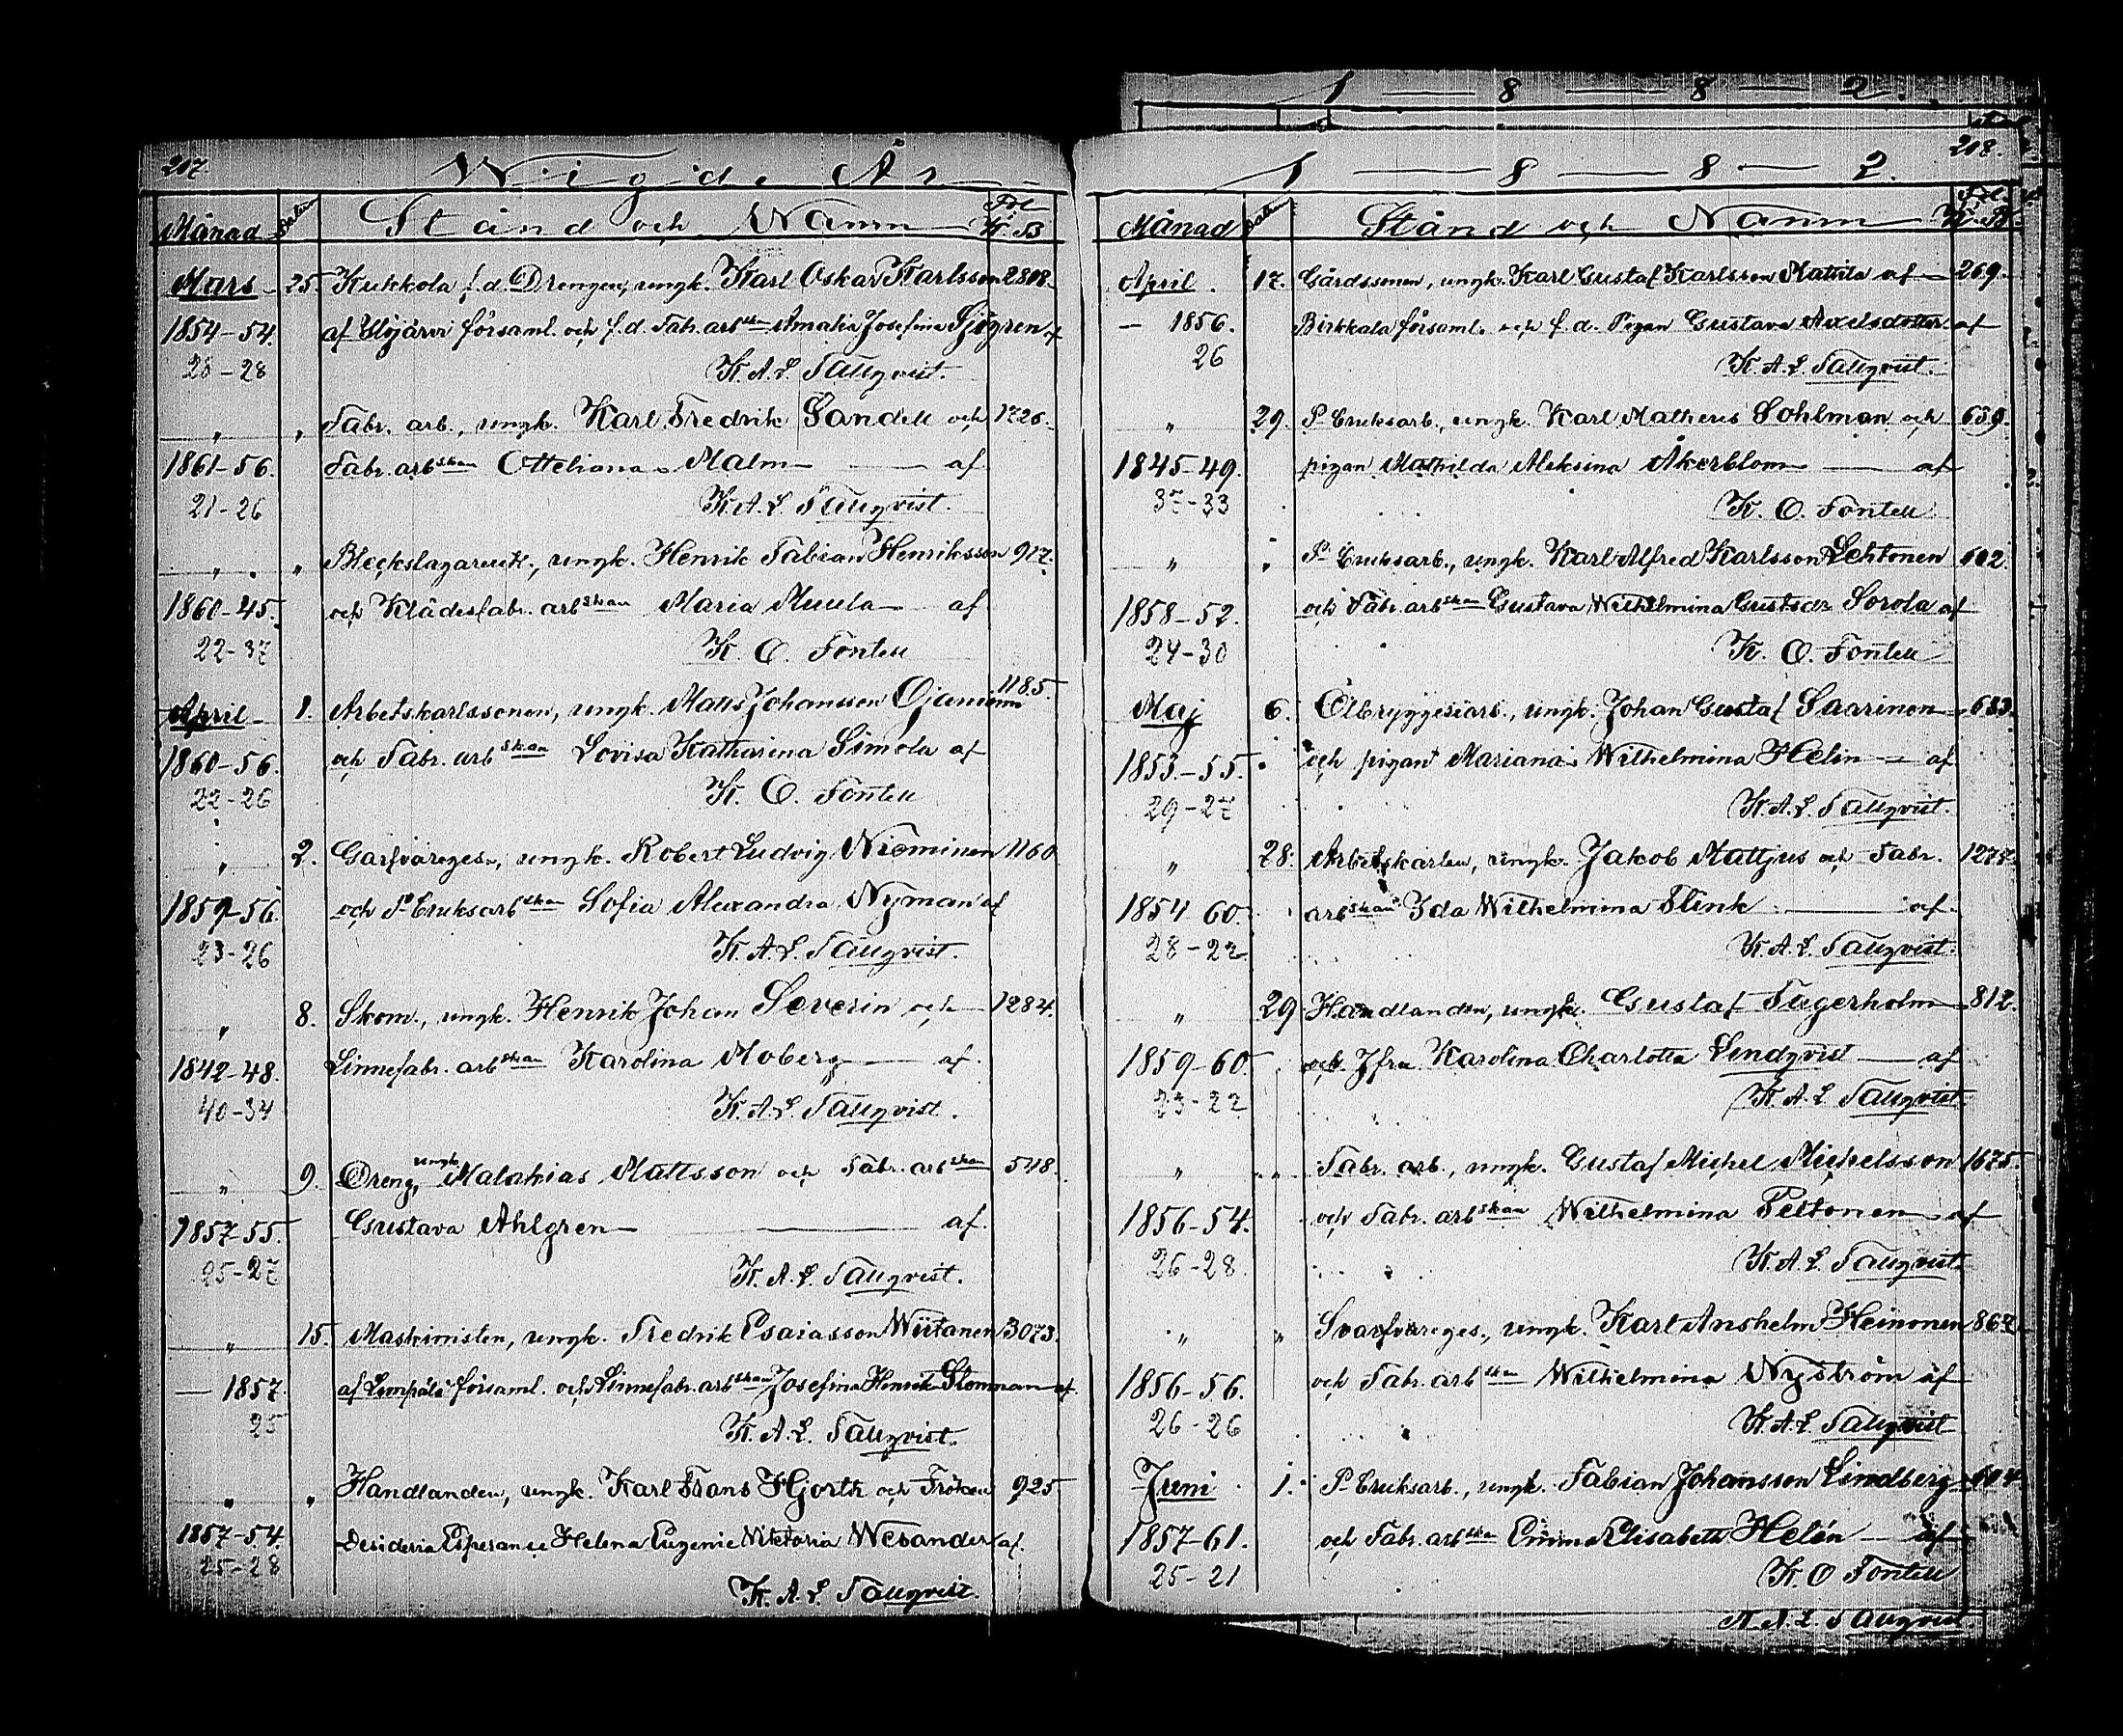 1 — 8 — 8 — 2.
207.
Wigde År
Månad Datum Stånd och Namn Fol K.B
Mars 25. Kukkola f.d. Drengen, ungk. Karl Oskar Karlsson 2808.
1854-54. af Ylöjärvi församl. och f.d. Fabr. arbskan Amalia Josefina Sjögren af
28-28 K.A.L. Tallqvist.
„ „ Fabr. arb., ungk. Karl Fredrik Sandell och 1726.
1861-56. Fabr. arbskan Otteliana Malm — af
21-26 K.A.L. Tallqvist.
„ „ Bleckslagare, ungk. Henrik Fabian Henriksson 917.
1860-45. och Klädesfabr. arbskan Maria Muula — af
22-37 K. O. Fontell
April 1. Arbetskarlssonen, ungk. Matts Johansson Ojanium 1185.
1860-56. och Fabr. arbskan Lovisa Katharina Simola af
22-26 K. O. Fontell
„ 2. Garfvareges., ungk. Robert Ludvig Nieminen 1160
1859-56. och P-bruksarbskan Sofia Alexandra Nyman af
23-26 K.A.L. Tallqvist.
„ 8. Skom., ungk. Henrik Johan Severin och 1284.
1842-48. Linnefabr. arbskan Karolina Moberg — af
40-34 K.A.L. Tallqvist.
„ 9. Dreng, ungk. Malakias Mattsson och Fabr. arbskan 548.
1857-55. Gustava Ahlgren — af
25-27 K.A.L. Tallqvist.
„ 15. Maskinisten, ungk. Fredrik Esaiasson Wiitanen 3073.
— 1857. af Lempälä församl. och Linnefabr. arbskan Josefina Henrika Blomman af
25 K.A.L. Tallqvist.
„ „ Handlanden, ungk. Karl Frans Hjorth och Fröken 925
1857-54. Desideria Esperance Helena Eugenie Viktoria Wesander af
25-28 K.A.L. Tallqvist.
218.
1 — 8 — 8 — 2.
Månad Datum Stånd och Namn Fol. K.B.
April. 17. Gårdssonen, ungk. Karl Gustaf Karlsson Mattila af — 269.
— 1856. Birkkala församl. och f.d. Pigan Gustava Axelsdotter af
26 K.A.L. Tallqvist.
„ 29. P-bruksarb., ungk. Karl Matheus Sohlman och 639.
1845-49. pigan Mathilda Aleksina Åkerblom — af
37-33 K. O. Fontell
„ „ P-bruksarb., ungk. Karl Alfred Karlsson Lehtonen 602.
1858-52. och Fabr. arbskan Gustava Wilhelmina Gustafsdr Sorola af
24-30 K. O. Fontell
Maj 6. Ölbryggeriarb., ungk. Johan Gustaf Saarinen 633.
1853-55. och pigan Mariana Wilhelmina Helin — af
29-27 K.A.L. Tallqvist.
„ 28. Arbetskarlen, ungk. Jakob Mattjus och Fabr. 1275.
1854 60. arbskan Ida Wilhelmina Flink — af
28-22 K.A.L. Tallqvist.
„ 29 Handlanden, ungk. Gustaf Fagerholm 812.
1859-60. och Jfru Karolina Charlotta Lindqvist — af
23-22 K.A.L. Tallqvist.
„ „ Fabr. arb., ungk. Gustaf Michel Michelsson 1675.
1856-54. och Fabr. arbskan Wilhelmina Peltonen af
26-28. K.A.L. Tallqvist.
„ „ Svarfvareges., ungk. Karl Anshelm Heinonen 867.
1856-56. och Fabr. arbskan Wilhelmina Nyström af
26-26 K.A.L. Tallqvist
Juni 1. P-bruksarb., ungk. Fabian Johansson Lindberg 604
1857-61. och Fabr. arbskan Emma Elisabeth Helén — af
25-21 K. O Fontell
K.A.L. Tallqvist